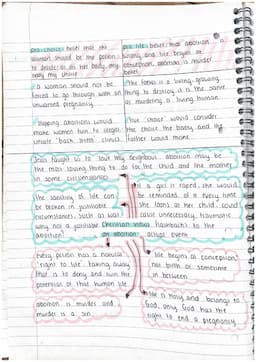 pro-choice: belief that the
woman should be the person
to decide as its her body, my
body my choice
pro-life: belief that abortion
wrong and life began at
conception, abortion is murder
belief
a woman should not be
forced to go through with an
unwanted pregnancy
the foetus is a living, growing
thing to destroy it is the same
as murdering a living human
stopping abortions would
make women turn to illegal
unsafe 'back street clinics'
true choice would consider
the choice the baby and the
father would make
Jesus taught us to 'love thy neighbour'. abortion may be
the most loving thing to do for the child and the mother
in some circumstances
the sanctity of life can
be broken in justifiable
circumstances such as war
why not a justifiable
abortion?
if a girl is raped she would
be reminded of it every time
she looks at her child. could
cause unnecessary, traumatic
flashbacks to the
actual event
Christian views
on abortion
Every person has a natural
'right to life'. taking away
that is to deny and ruin the
potential of that human life
life began at conception,
not birth or sometime
in between
abortion is murder and
murder is a sin
life is holy and belongs to
God, only God has the
right to end a pregnancy